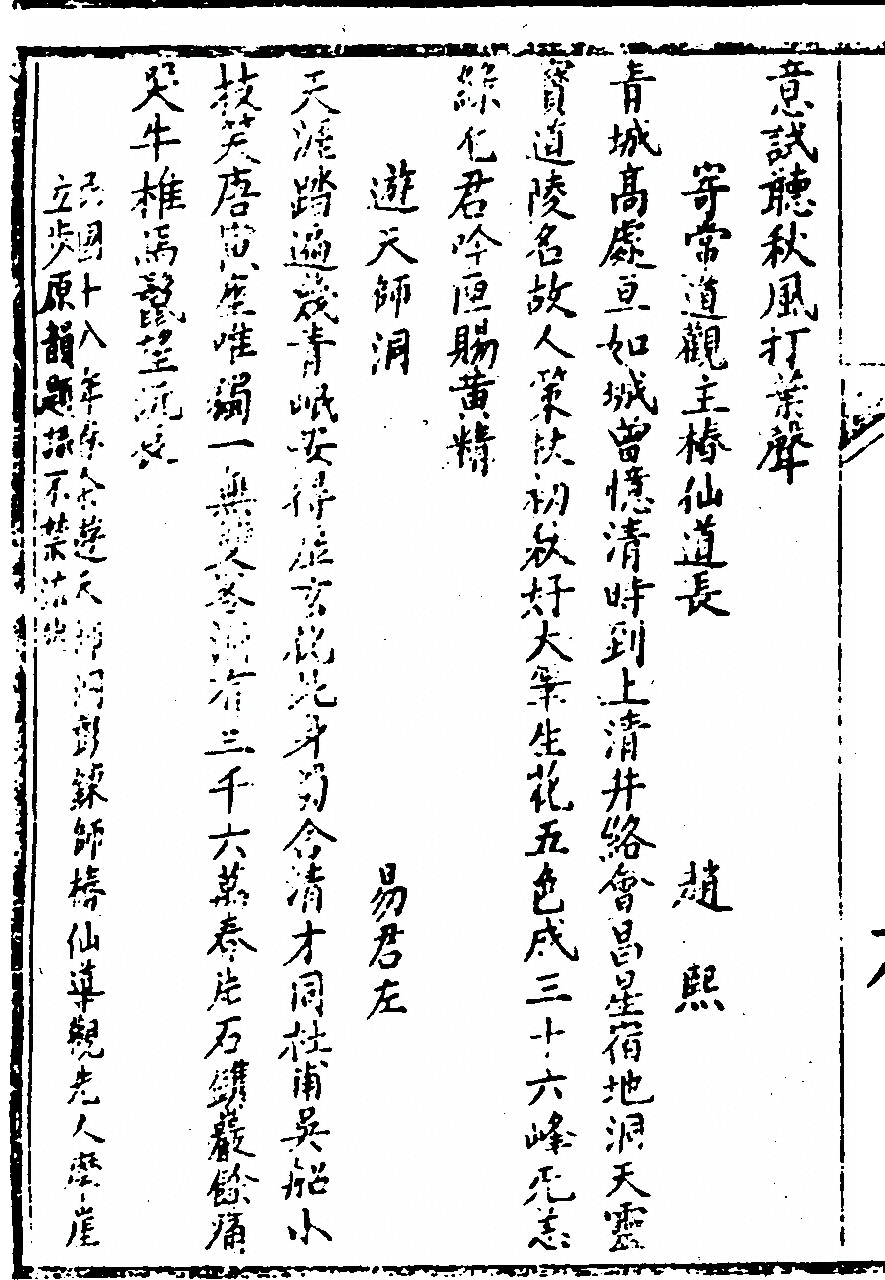 意試聽秋風打葉聲
寄常道觀主椿仙道長 趙熙
青城高處亘如城曾憶清時到上清井絡會昌星宿地洞天靈
寶道陵名故人策杖初秋好大筆生花五色成三十六峰光羨
綠化君吟匣賜黃精
遊天師洞 易君左
天涯踏遍幾青岷安得虛玄託此身蜀合清才同杜甫吳船小
技笑唐寅座唯獨一無雙客洞有三千六萬春片石鐫巖餘痛
哭牛椎馬鬣望沉
民國十八年 天師洞彭鍊師椿仙導觀先人磨崖
立步原韻題 不禁